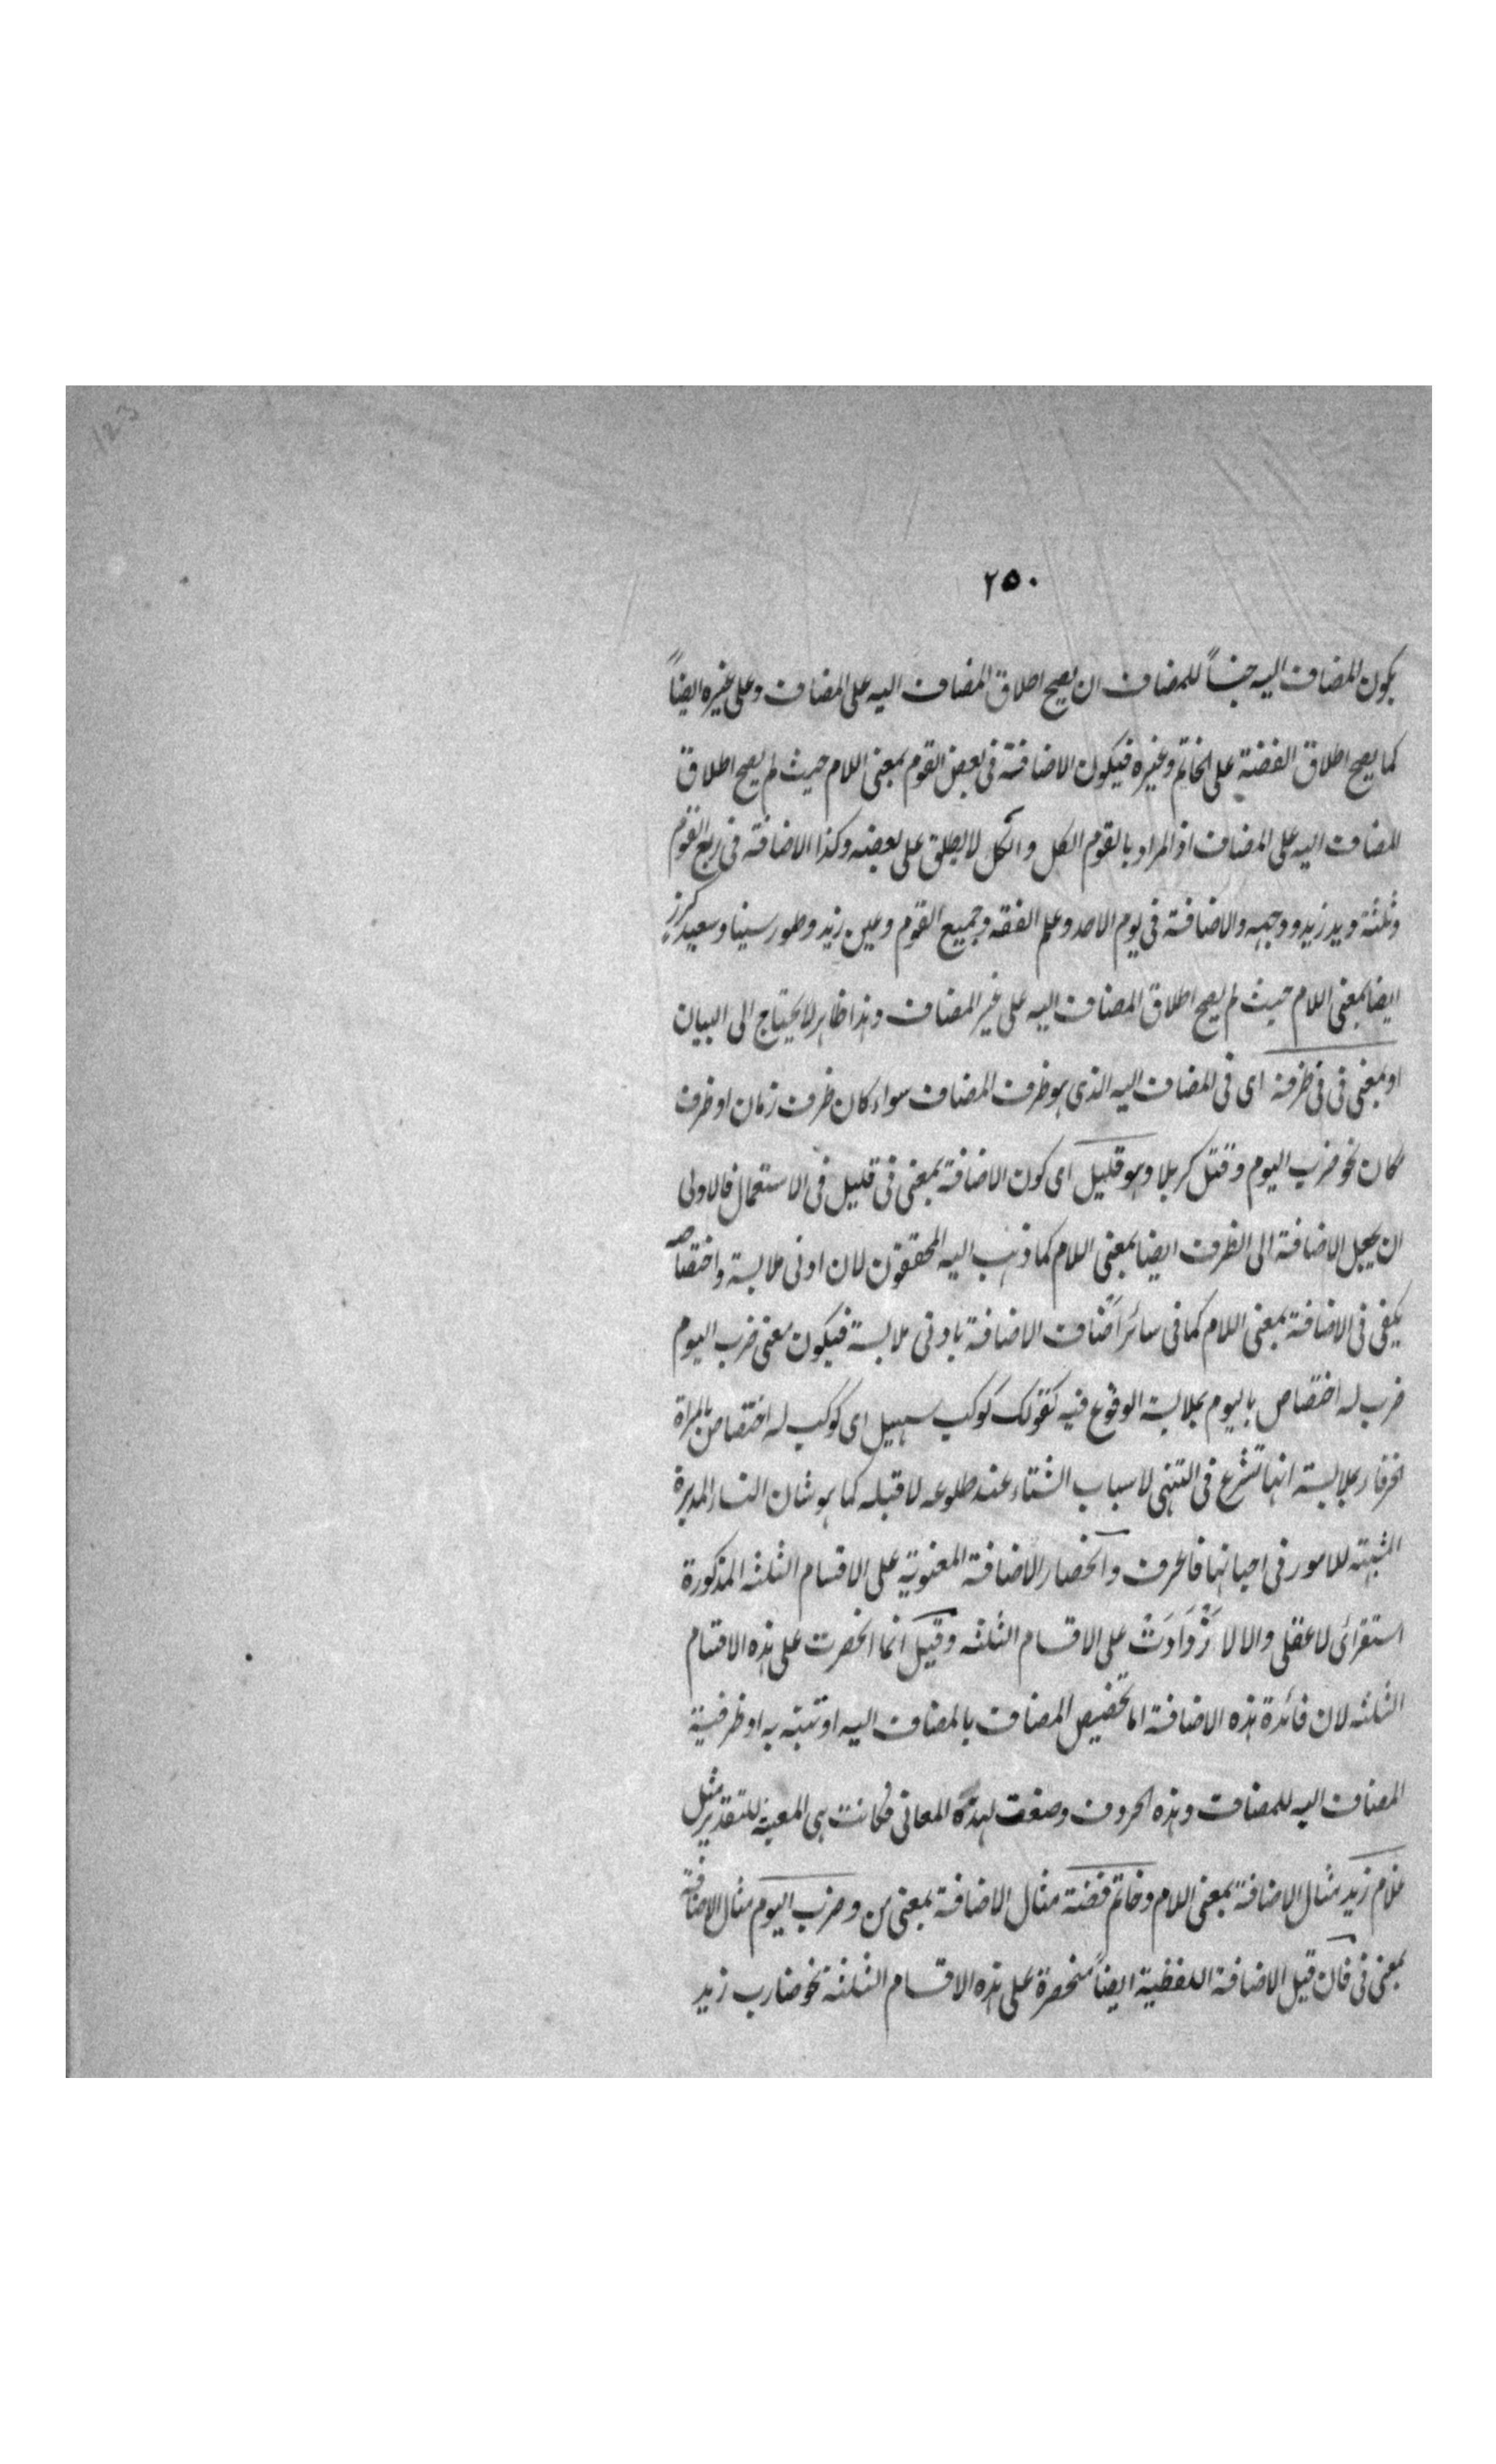 ٢٥٠
يكون المضاف اليه جنساً للمضاف ان يصح اطلاق المضاف اليه على المضاف وعلى غيره ايضاً
كما يصح اطلاق الفضة على الخاتم وغيره فيكون الاضافة فى بعض القوم بمعنى اللام حيث لم يصح اطلاق
المضاف اليه على المضاف اذ المراد بالقوم الكل والكل لا يطلق على بعضه وكذا الاضافة فى ربع القوم
وثلثة ويد زيد ووجهه والاضافة فى يوم الاحد وعلم الفقه وجميع القوم وعين زيد وطور سينا وسعيد كرز
ايضا بمعنى اللام حيث لم يصح اطلاق المضاف اليه على غير المضاف وهذا ظاهر لا يحتاج الى البيان
او بمعنى فى فى ظرفه اى فى المضاف اليه الذى هو ظرف المضاف سواء كان ظرف زمان او ظرف
مكان نحو ضرب اليوم وقتل كربلا وهو قليل اى كون الاضافة بمعنى فى قليل فى الاستعمال فالاولى
ان يجعل الاضافة الى الظرف ايضا بمعنى اللام كما ذهب اليه المحققون لان ادنى ملابسة واختصاص
يكفى فى الاضافة بمعنى اللام كما فى سائر اضناف الاضافة بادنى ملابسة فيكون معنى ضرب اليوم
ضرب له اختصاص باليوم بملابسة الوقوع فيه كقولك كوكب سهيل اى كوكب له اختصاص بالمراة
الخرقاء بملابسة انها تشرع فى التهنى لاسباب الشتاء عند طلوعه لا قبله كما هو شان النساء المدبرة
للامور فى احيانها فاعرف وانحصار الاضافة المعنوية على الاقسام الثلثه المذكورة
استقرائى لا عقلى والا لا على الاقسام الثلثه وقيل انما انحصرت على هذه الاقسام
الثلثه لان فائدة هذه الاضافة اما تخصيص المضاف بالمضاف اليه او به او ظرفية
المضاف اليه للمضاف وهذه الحروف وضعت لهذه المعانى فكانت هى المعينة للتقدير مثل
غلام زيد مثال الاضافة بمعنى اللام وخاتم فضة مثال الاضافة بمعنى من وضرب اليوم مثال الاضافة
بمعنى فى فان قيل الاضافة اللفظية ايضاً منحصرة على هذه الاقسام الثلثة نحو ضارب زيد